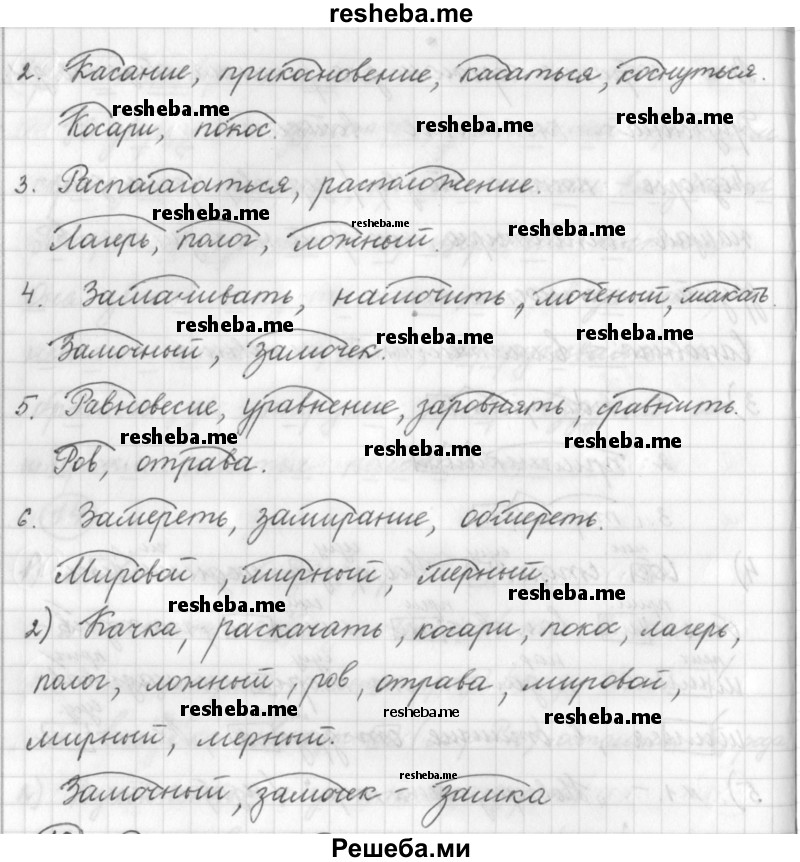 resheba.me
2. Касание, прикосновение, касаться, коснуться.
resheba.me resheba.me resheba.me
Косари, покос.
3. Располагаться, расположение.
resheba.me resheba.me resheba.me
Лагерь, полог, ложный.
4. Замачивать, намочить, мочёный, макать.
resheba.me resheba.me resheba.me
Замочный, замочек.
5. Равновесие, уравнение, заровнять, сравнить.
resheba.me resheba.me resheba.me
Ров, отрава.
6. Замереть, замирание, обмереть.
Мировой, мирный, мерный.
resheba.me resheba.me
2) Качка, раскачать, косари, покос, лагерь,
полог, ложный, ров, отрава, мировой,
resheba.me resheba.me resheba.me
мирный, мерный.
resheba.me
Замочный, замочек – замка
Решеба.ми